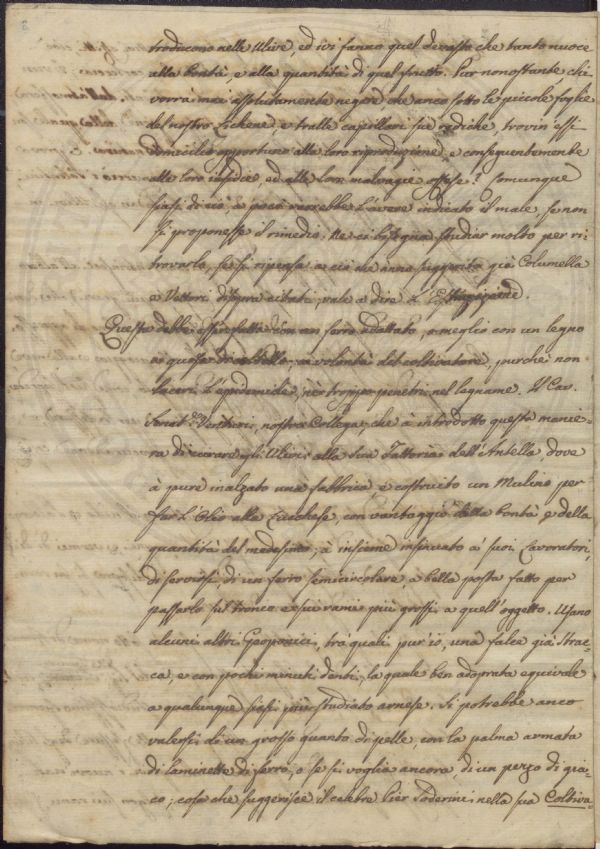 troducono nelle Ulive ed ivi fanno quel devasto che tanto nuoce
alla bontà, e alla quantità di quel frutto. Pur nonostante chi
vorrà mai assolutamente negare che anco sotto le piccole foglie
del nostro Lichene, e tralle capillari sue radiche, trovin essi
domicilio opportuno alla loro riproduzione, e conseguentemente
alle loro insidie, ed alle loro malvagie offese? Comunque
siasi di ciò, a poco varrebbe l'avere indicato il male, se non
si proponesse il rimedio. Nè ci bisogna studiar molto per ri-
trovarlo, se si ripensa a ciò che anno suggerito già Columella
e Vettori di sopra citati, vale a dire l'
Questa debbe esser fatta con un ferro adattato, o meglio con un legno
a volontà del coltivatore, purchè non
laceri l'epidermide, nè troppo penetri nel legname. Il Cav.
Senat.e Vernieri, nostro Collega, che à introdotto questa manie-
ra di curare gli Ulivi alla sua Fattoria dell'Antella, dove
à pure inalzato una fabbrica e costruito un Mulino per
far l'Olio alla Lucchese, con vantaggio della bontà e della
quantità del medesimo, à insieme insinuato a' suoi Lavoratori,
di servirsi di un ferro semicircolare a bella posta fatto per
passarlo sul tronco e sui rami più grossi a quell'oggetto. Usano
alcuni altri Geoponici, tra quali pur io, una falce già strac-
ca, e con pochi minuti denti, la quale ben adoprata equivale
a qualunque siasi più studiato arnese. Si potrebbe anco
valersi di un grosso guanto di pelle, con la palma armata
di laminette di ferro, o se si voglia ancora, di un pezzo di gia-
co; cosa che suggerisce il celebre Pier Soderini nella sua Coltiva-